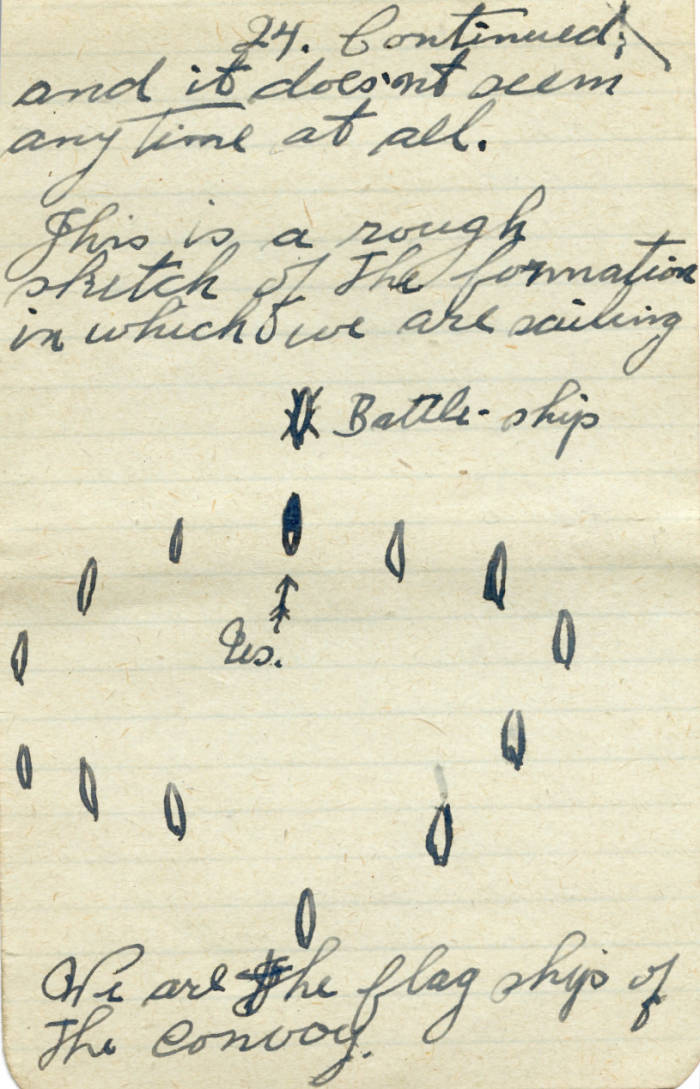 24. Continued;
and it doesnt seem
any time at all.
This is a rough
sketch of the formation
in which we are sailing
Battle-ship
Us.
We are the flag ship of
the convoy.